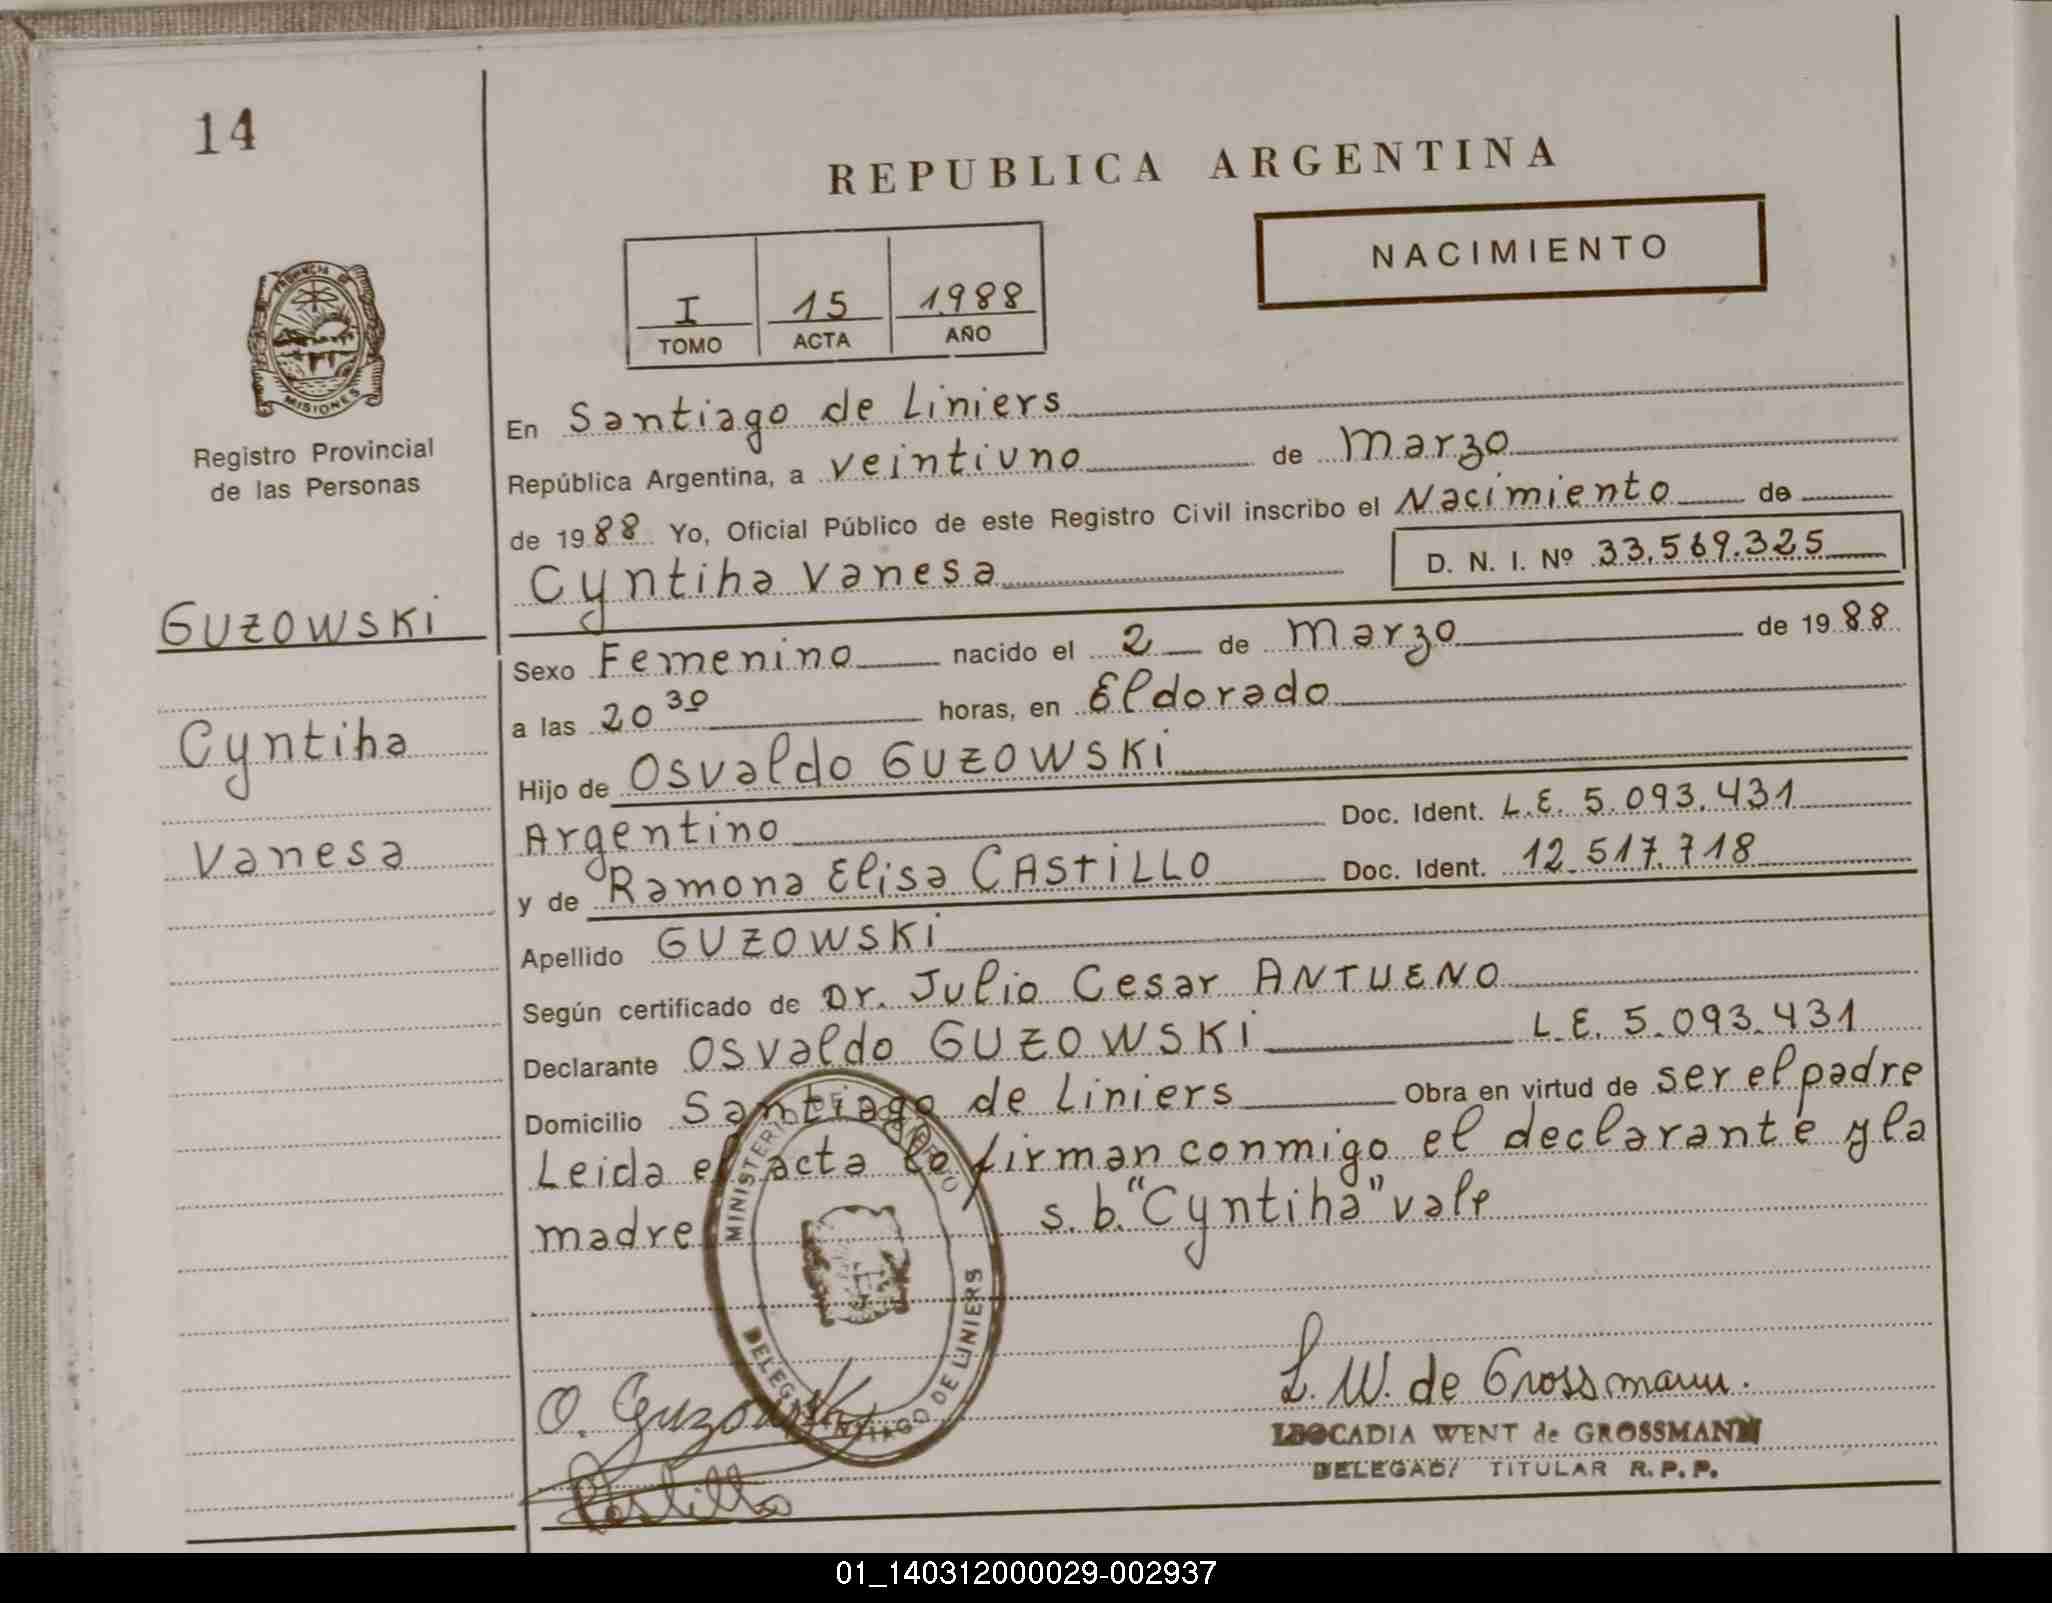 14
REPUBLICA ARGENTINA
NACIMIENTO
I 15 1988
TOMO ACTA AÑO
PROVINCIA DE
MISIONES
Registro Provincial
de las Personas
GUZOWSKI
Cyntiha
Vanesa
En Santiago de Liniers
República Argentina, a veintiuno de Marzo
de 1988 Yo, Oficial Público de este Registro Civil inscribo el Nacimiento de
Cyntiha Vanesa D. N. I. Nº 33.569.325
Sexo Femenino nacido el 2 de Marzo de 1988
a las 20 30 horas, en Eldorado
Hijo de Osvaldo GUZOWSKI
Argentino Doc. Ident. L.E. 5.093.431
y de Ramona Elisa CASTILLO Doc. Ident. 12.517.718
Apellido GUZOWSKI
Según certificado de Dr. Julio Cesar ANTUENO
Declarante Osvaldo GUZOWSKI L.E. 5.093.431
Domicilio Santiago de Liniers Obra en virtud de ser el padre
Leida el acta la firman conmigo el declarante y la
madre s. b. "Cyntiha" vale
MINISTERIO DE GOBIERNO
SANTIAGO DE LINIERS
O. Guzowski
Castillo
L. W. de Grossmann.
LEOCADIA WENT de GROSSMANN
DELEGADA TITULAR R. P. P.
01_140312000029-002937